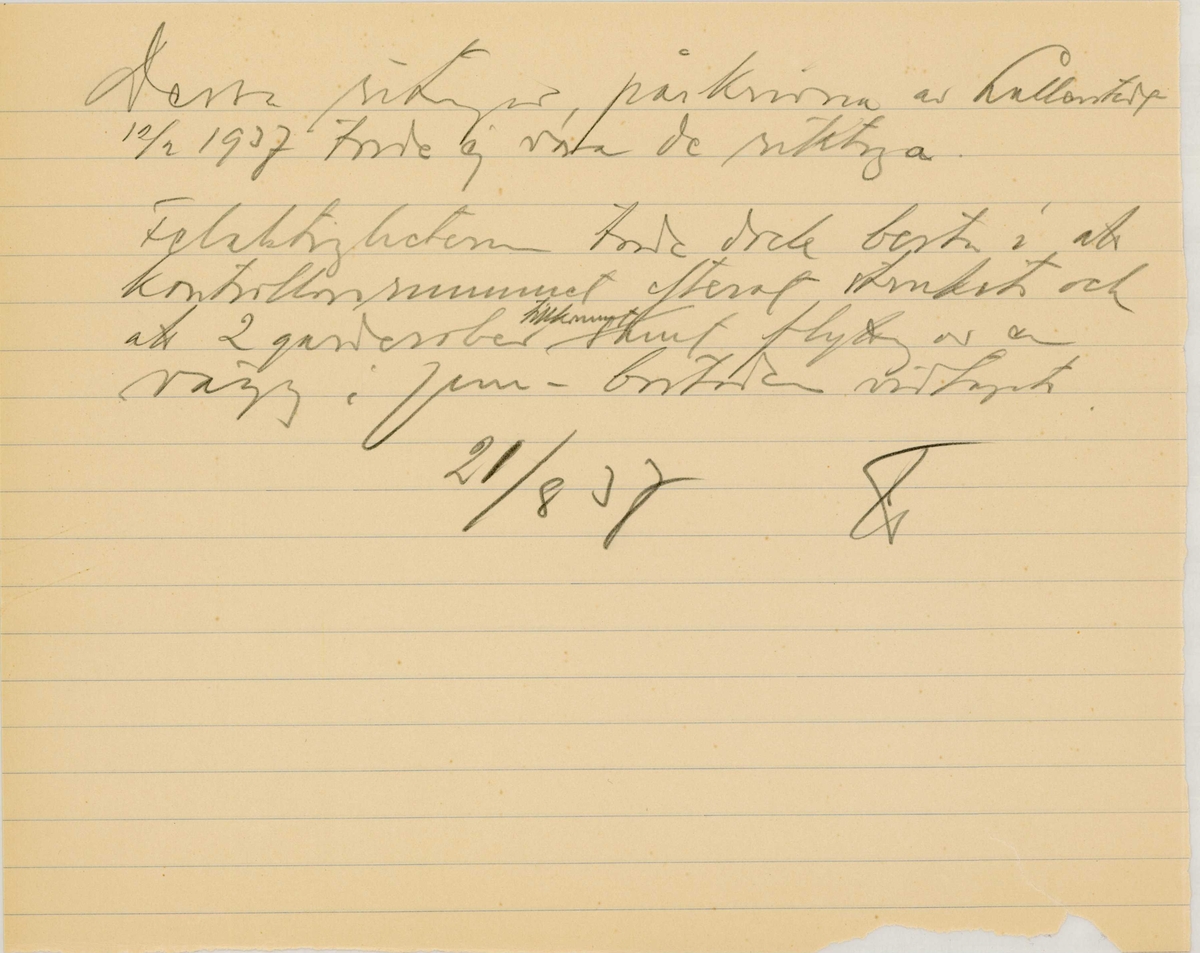 Dessa ritningar, påskrivna av Lallerstedt
12/2 1937 torde ej vara de riktiga.
Felaktigheterna torde dock bestå i att
kontrollörsrummet efteråt strukits och
att 2 garderober tillkommit samt flyttning av en
vägg i bostaden vidtagits.
21/8 37